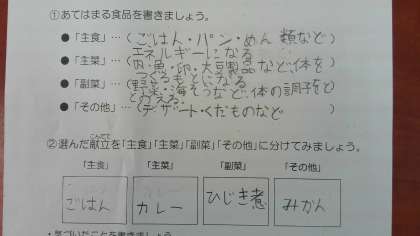 ①あてはまる食品を書きましょう。
●「主食」…(ごはん・パン・めん類など)
エネルギーになる
●「主菜」…(肉・魚・卵・大豆製品など、体を
つくるもとになる
●「副菜」…(野菜・海そうなど、体の調子をと
とのえる。
●「その他」…(デザート・くだものなど)
②選んだ献立を「主食」「主菜」「副菜」「その他」に分けてみましょう。
こんだて
「主食」 「主菜」 「副菜」 「その他」
ごはん カレー ひじき煮 みかん
・気づいたことを書きましょう